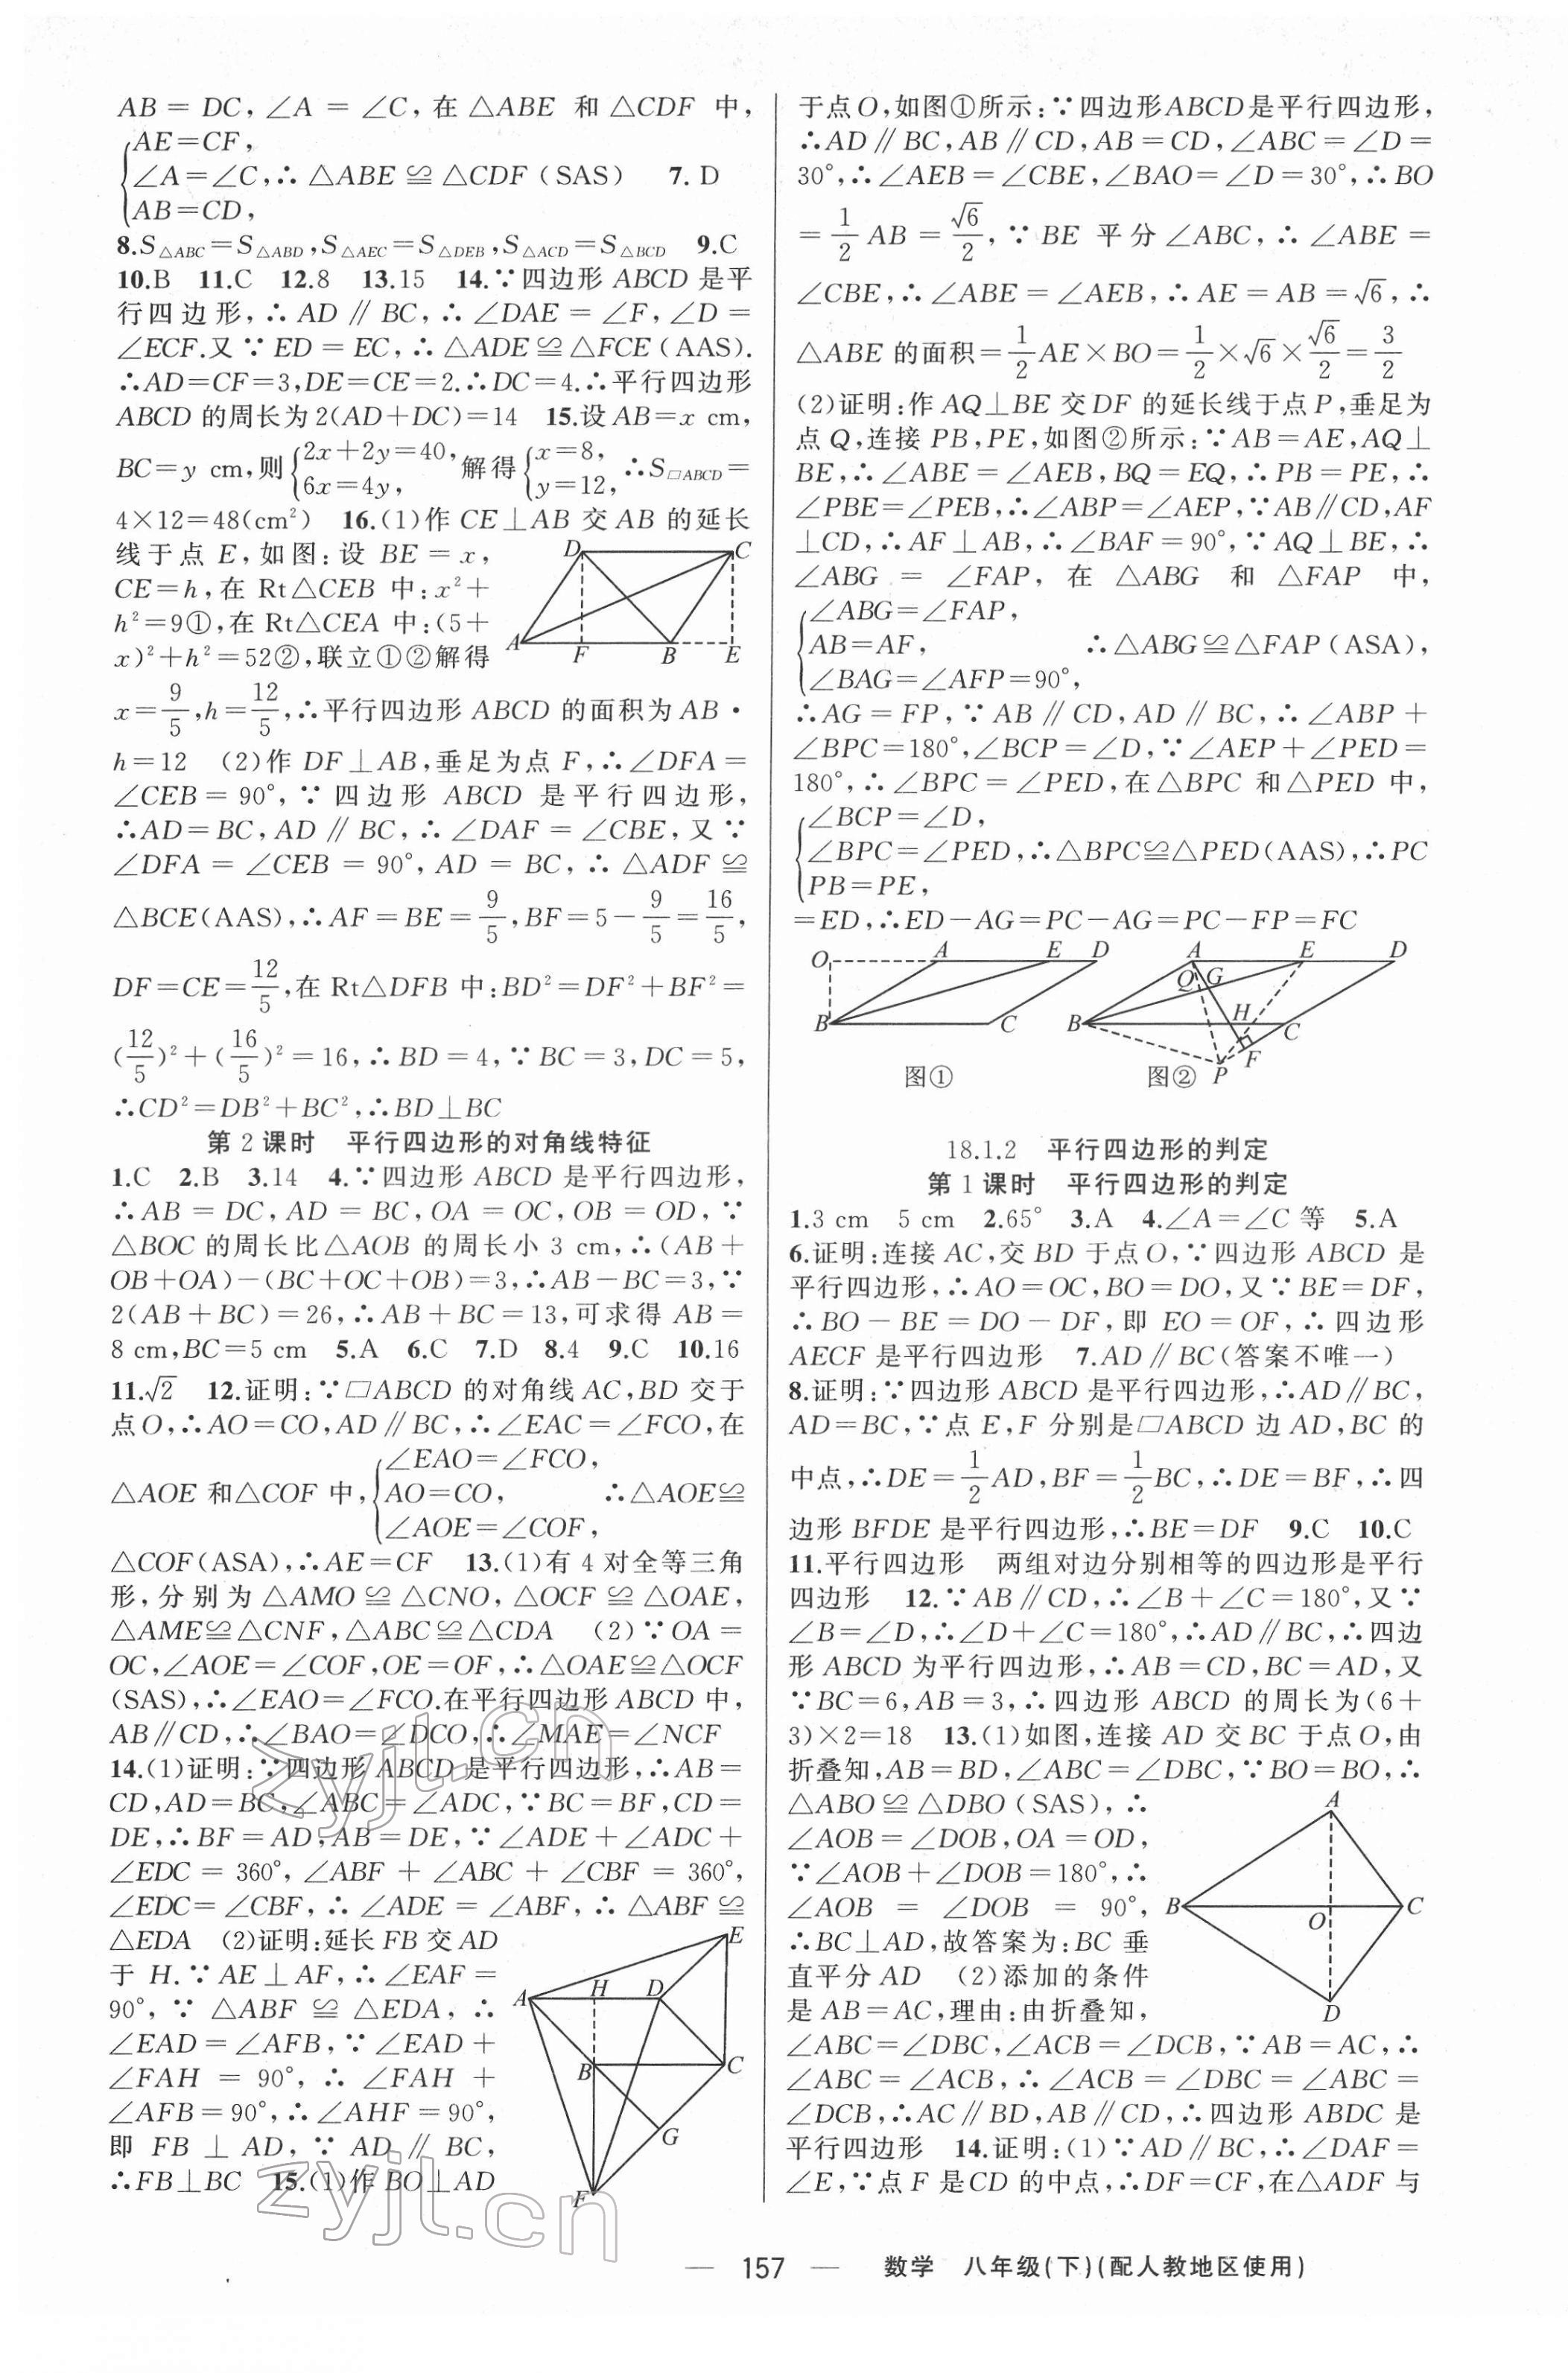 AB = DC, ∠A = ∠C, 在 △ABE 和 △CDF 中,
AE=CF,
∠A=∠C,∴ △ABE ≌ △CDF (SAS) 7. D
AB=CD,
8.S△ABC=S△ABD,S△AEC=S△DEB,S△ACD=S△BCD 9.C
10.B 11.C 12.8 13.15 14.∵四边形 ABCD 是平
行四边形, ∴ AD ∥ BC, ∴ ∠DAE = ∠F, ∠D =
∠ECF.又 ∵ ED = EC, ∴ △ADE ≌ △FCE (AAS).
∴AD=CF=3,DE=CE=2.∴DC=4.∴平行四边形
ABCD 的周长为 2(AD+DC)=14 15.设 AB=x cm,
BC=y cm,则{2x+2y=40, 6x=4y, 解得{x=8, y=12, ∴S▱ABCD=
4×12=48(cm²) 16.(1)作 CE⊥AB 交 AB 的延长
线于点 E, 如图: 设 BE = x,
CE=h,在 Rt△CEB 中:x²+
h²=9①,在 Rt△CEA 中:(5+
x)²+h²=52②,联立①②解得
x=9/5,h=12/5,∴平行四边形 ABCD 的面积为 AB·
h=12 (2)作 DF⊥AB,垂足为点 F,∴∠DFA=
∠CEB = 90°, ∵ 四边形 ABCD 是平行四边形,
∴AD=BC, AD ∥ BC, ∴ ∠DAF = ∠CBE, 又 ∵
∠DFA = ∠CEB = 90°, AD = BC, ∴ △ADF ≌
△BCE(AAS),∴AF=BE=9/5,BF=5−9/5=16/5,
DF=CE=12/5,在 Rt△DFB 中:BD²=DF²+BF²=
(12/5)²+(16/5)²=16,∴BD=4,∵BC=3,DC=5,
∴CD²=DB²+BC²,∴BD⊥BC
D C A F B E
第 2 课时 平行四边形的对角线特征
1.C 2.B 3.14 4.∵四边形 ABCD 是平行四边形,
∴AB = DC, AD = BC, OA = OC, OB = OD, ∵
△BOC 的周长比△AOB 的周长小 3 cm,∴(AB+
OB+OA)−(BC+OC+OB)=3,∴AB−BC=3,∵
2(AB+BC)=26,∴AB+BC=13,可求得 AB=
8 cm,BC=5 cm 5.A 6.C 7.D 8.4 9.C 10.16
11.√2 12.证明:∵▱ABCD 的对角线 AC,BD 交于
点O,∴AO=CO,AD∥BC,∴∠EAC=∠FCO,在
∠EAO=∠FCO,
△AOE 和△COF 中, AO=CO, ∴△AOE≌
∠AOE=∠COF,
△COF(ASA),∴AE=CF 13.(1)有 4 对全等三角
形, 分别为 △AMO ≌ △CNO, △OCF ≌ △OAE,
△AME≌△CNF,△ABC≌△CDA (2)∵OA=
OC,∠AOE=∠COF,OE=OF,∴△OAE≌△OCF
(SAS),∴∠EAO=∠FCO.在平行四边形 ABCD 中,
AB∥CD,∴∠BAO=∠DCO,∴∠MAE=∠NCF
14.(1)证明:∵四边形 ABCD 是平行四边形,∴AB=
CD,AD=BC,∠ABC=∠ADC,∵BC=BF,CD=
DE,∴BF=AD,AB=DE,∵∠ADE+∠ADC+
∠EDC = 360°, ∠ABF + ∠ABC + ∠CBF = 360°,
∠EDC=∠CBF, ∴ ∠ADE = ∠ABF, ∴ △ABF ≌
△EDA (2)证明:延长 FB 交 AD
于 H.∵ AE⊥AF,∴∠EAF=
90°, ∵ △ABF ≌ △EDA, ∴
∠EAD=∠AFB,∵∠EAD+
∠FAH = 90°, ∴ ∠FAH +
∠AFB=90°,∴∠AHF=90°,
即 FB ⊥ AD, ∵ AD ∥ BC,
∴FB⊥BC 15.(1)作 BO⊥AD
E A H D B C G F
于点O,如图①所示:∵四边形ABCD是平行四边形,
∴AD∥BC,AB∥CD,AB=CD,∠ABC=∠D=
30°,∴∠AEB=∠CBE,∠BAO=∠D=30°,∴BO
=1/2 AB=√6/2, ∵ BE 平分 ∠ABC, ∴ ∠ABE =
∠CBE,∴∠ABE=∠AEB,∴AE=AB=√6,∴
△ABE 的面积=1/2 AE×BO=1/2×√6×√6/2=3/2
(2)证明:作 AQ⊥BE 交DF 的延长线于点 P,垂足为
点 Q,连接 PB,PE,如图②所示:∵AB=AE,AQ⊥
BE,∴∠ABE=∠AEB,BQ=EQ,∴PB=PE,∴
∠PBE=∠PEB,∴∠ABP=∠AEP,∵AB∥CD,AF
⊥CD,∴AF⊥AB,∴∠BAF=90°,∵AQ⊥BE,∴
∠ABG = ∠FAP, 在 △ABG 和 △FAP 中,
∠ABG=∠FAP,
AB=AF, ∴△ABG≌△FAP(ASA),
∠BAG=∠AFP=90°,
∴AG=FP,∵AB∥CD,AD∥BC,∴∠ABP+
∠BPC=180°,∠BCP=∠D,∵∠AEP+∠PED=
180°,∴∠BPC=∠PED,在△BPC 和△PED 中,
∠BCP=∠D,
∠BPC=∠PED,∴△BPC≌△PED(AAS),∴PC
PB=PE,
=ED,∴ED−AG=PC−AG=PC−FP=FC
O A E D B C
图①
A E D Q G B H C F P
图②
18.1.2 平行四边形的判定
第 1 课时 平行四边形的判定
1.3 cm 5 cm 2.65° 3.A 4.∠A=∠C 等 5.A
6.证明:连接 AC,交 BD 于点O,∵四边形 ABCD 是
平行四边形,∴AO=OC,BO=DO,又∵BE=DF,
∴BO−BE=DO−DF,即 EO=OF,∴四边形
AECF 是平行四边形 7.AD∥BC(答案不唯一)
8.证明:∵四边形 ABCD 是平行四边形,∴AD∥BC,
AD=BC,∵点 E,F 分别是▱ABCD 边 AD,BC 的
中点,∴DE=1/2 AD,BF=1/2 BC,∴DE=BF,∴四
边形 BFDE 是平行四边形,∴BE=DF 9.C 10.C
11.平行四边形 两组对边分别相等的四边形是平行
四边形 12.∵AB∥CD,∴∠B+∠C=180°,又∵
∠B=∠D,∴∠D+∠C=180°,∴AD∥BC,∴四边
形 ABCD 为平行四边形,∴AB=CD,BC=AD,又
∵BC=6,AB=3,∴四边形 ABCD 的周长为(6+
3)×2=18 13.(1)如图,连接 AD 交 BC 于点O,由
折叠知,AB=BD,∠ABC=∠DBC,∵BO=BO,∴
△ABO≌△DBO(SAS), ∴
∠AOB=∠DOB,OA=OD,
∵∠AOB+∠DOB=180°,∴
∠AOB = ∠DOB = 90°,
∴BC⊥AD,故答案为:BC 垂
直平分 AD (2)添加的条件
是 AB=AC,理由:由折叠知,
A B O C D
∠ABC=∠DBC,∠ACB=∠DCB,∵AB=AC,∴
∠ABC=∠ACB,∴∠ACB=∠DBC=∠ABC=
∠DCB,∴AC∥BD,AB∥CD,∴四边形 ABDC 是
平行四边形 14.证明:(1)∵AD∥BC,∴∠DAF=
∠E,∵点 F 是CD 的中点,∴DF=CF,在△ADF 与
zyjl.cn
zyjl.cn
— 157 — 数学 八年级(下)(配人教地区使用)